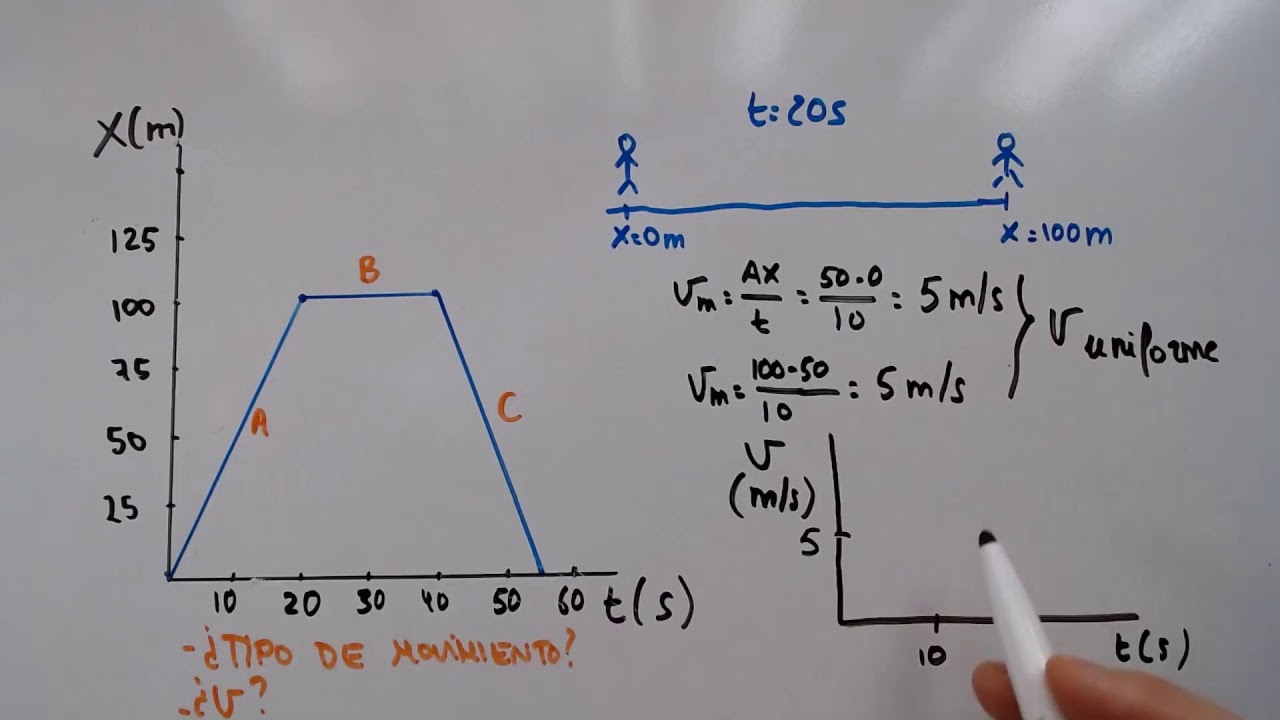 X(m)
125
100
75
50
25
A
B
C
10 20 30 40 50 60 t(s)
-¿TIPO DE MOVIMIENTO?
-¿V?
t=20s
X=0m
X=100m
Vm = ΔX/t = 50-0/10 = 5 m/s
Vm = 100-50/10 = 5 m/s
V uniforme
V
(m/s)
5
10
t(s)